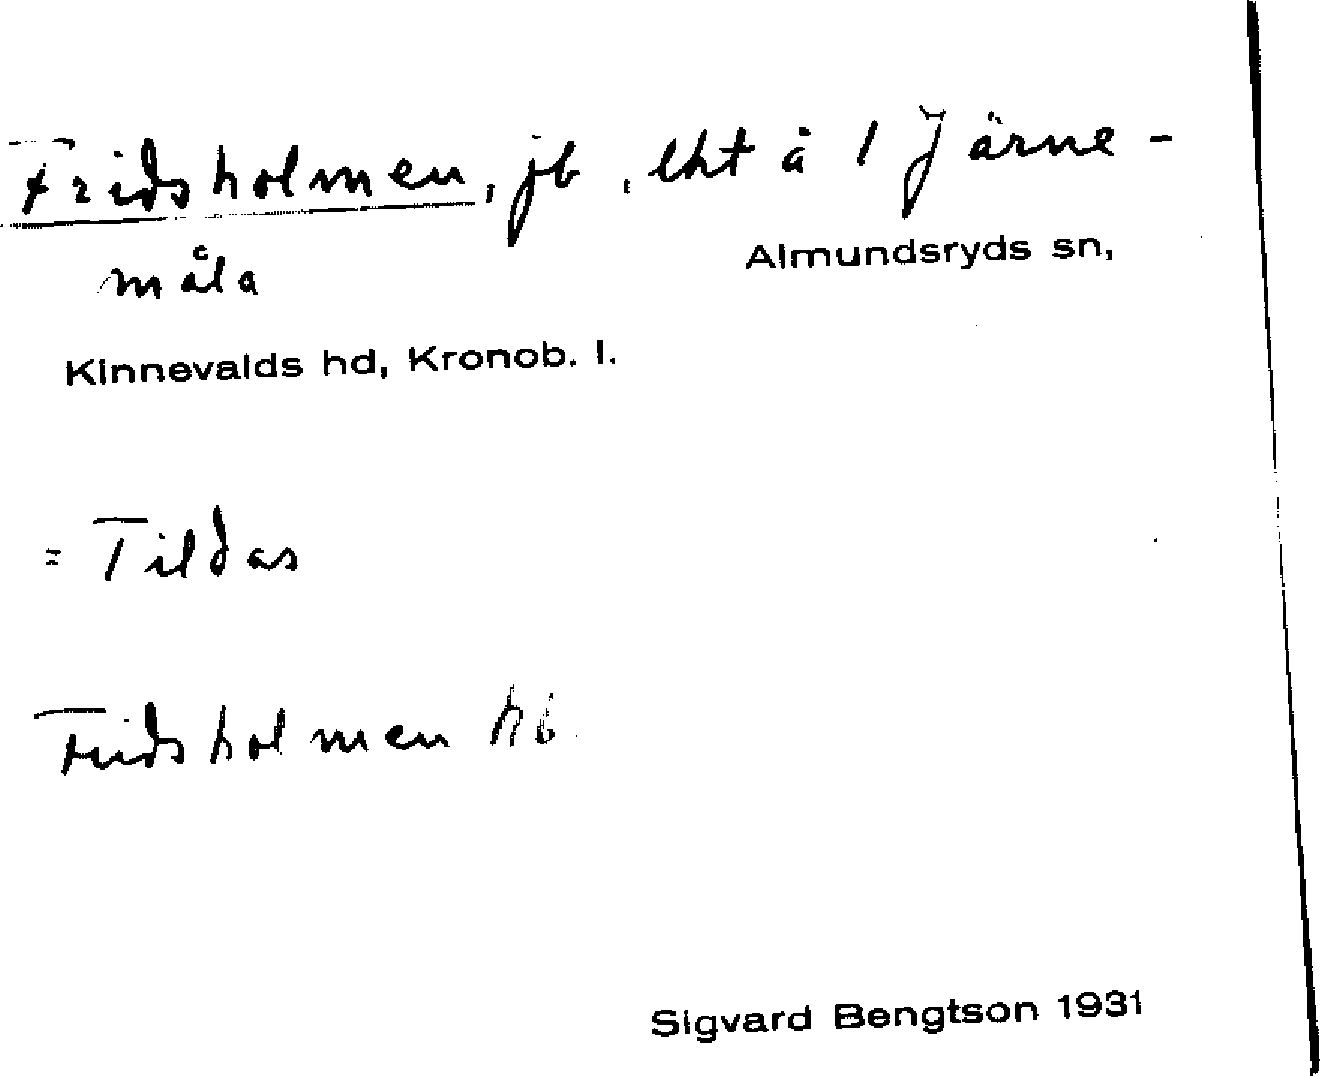 Fridsholmen, jb, lht å 1 Järne-
måla Almundsryds sn,
Kinnevalds hd, Kronob. l.
= Tildas
Fridsholmen hb
Sigvard Bengtson 1931